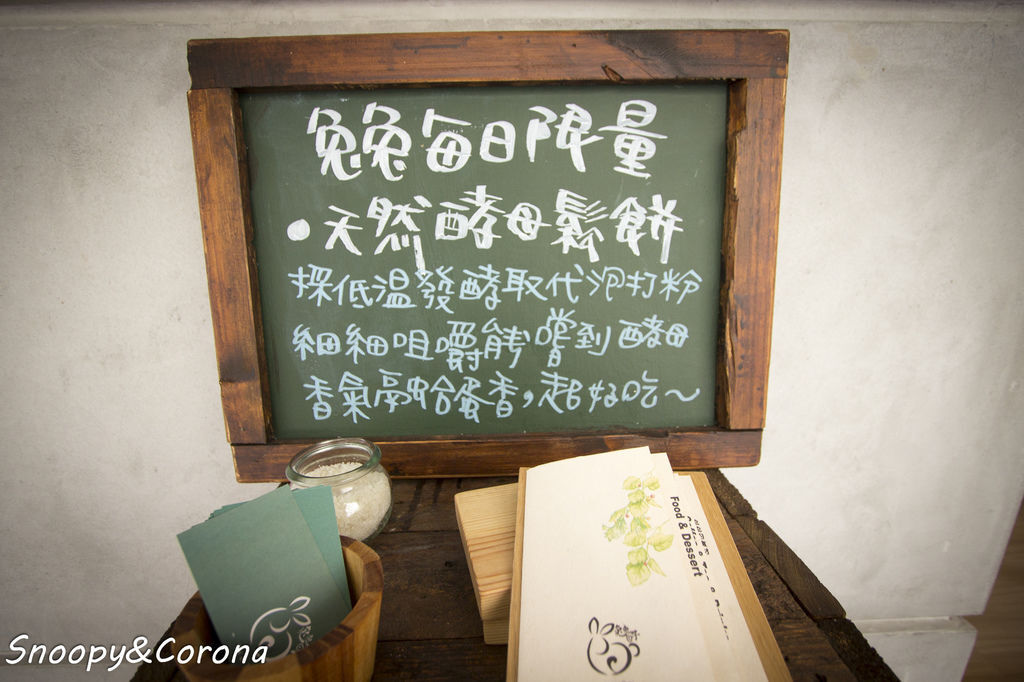 兔兔每日限量
•天然酵母鬆餅
採低溫發酵取代泡打粉
細細咀嚼能嚐到酵母
香氣融合蛋香,超好吃~
Food & Dessert
Snoopy&Corona